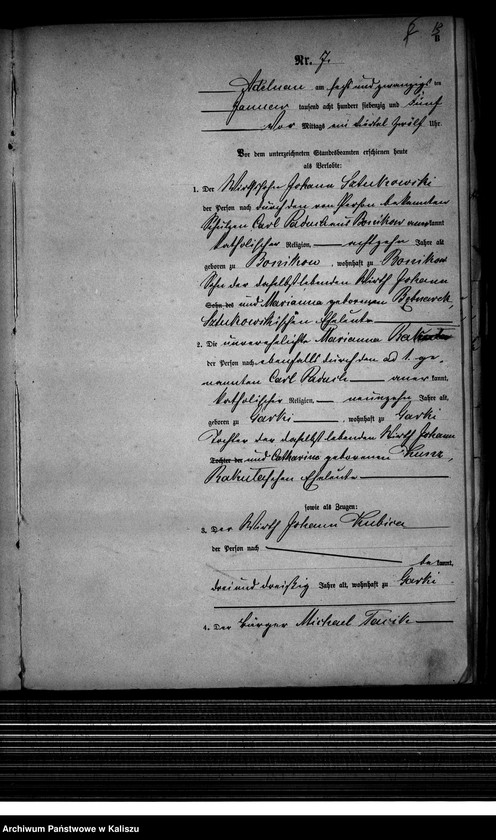 B
Nr. 7.
Adelnau am sechs und zwanzigsten
Januar tausend acht hundert siebenzig und fünf
Vor Mittags ein viertel zwölf Uhr.
Vor dem unterzeichneten Standesbeamten erschienen heute
als Verlobte:
1. Der Wirthssohn Johann Sztukowski
der Person nach durch den von Person bekannten
Schulzen Carl aus Bonikow anerkannt
katholischer Religion, achtzehn Jahre alt
geboren zu Bonikow, wohnhaft zu Bonikow
Sohn der daselbst lebenden Wirth Johann
Sohn des und Marianna geborenen
Sztukowskischen Eheleute
2. Die unverehelichte Marianna
der Person nach ebenfalls durch den ad 1. ge-
nannten Carl anerkannt,
katholischer Religion, neunzehn Jahre alt,
geboren zu Garki, wohnhaft zu Garki
Tochter der daselbst lebenden Wirth Johann
Tochter des und Catharina geborenen
schen Eheleute
sowie als Zeugen:
3. Der Wirth Johann Kubica
der Person nach
bekannt,
drei und dreißig Jahre alt, wohnhaft zu Garki
4. Der Bürger Michael
Archiwum Państwowe w Kaliszu